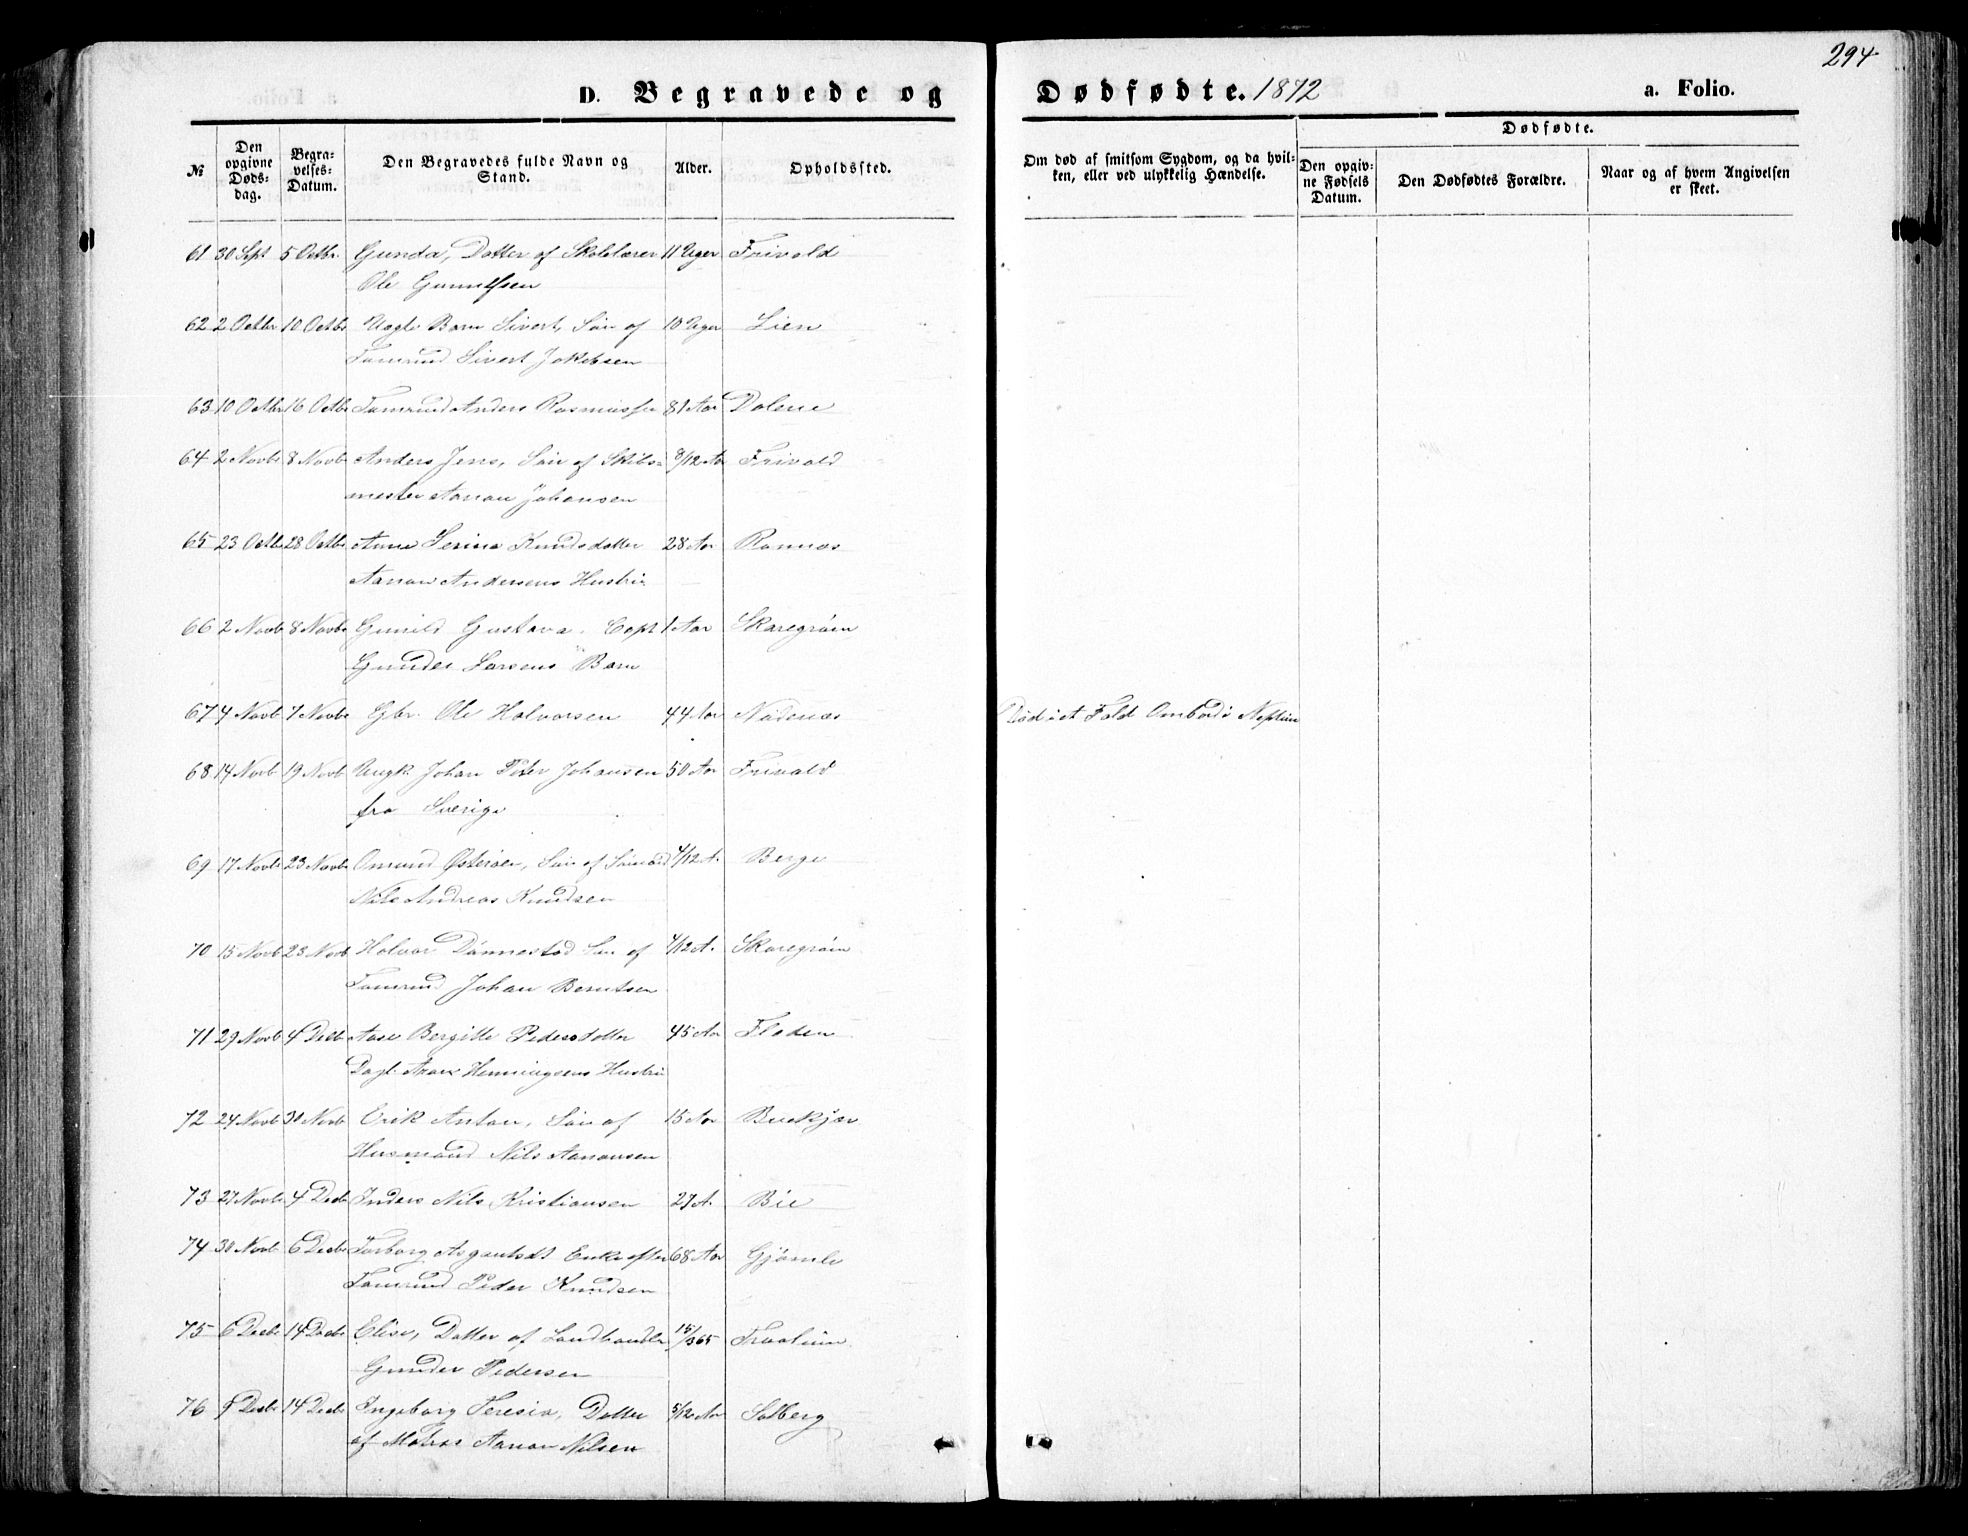 294
D. Begravede og Dødfødte. 1872 a. Folio.
Dødfødte.
№ Den opgivne Døds-dag. Begra-velses-Datum. Den Begravedes fulde Navn og Stand. Alder. Opholdssted. Om død af smitsom Sygdom, og da hvil-ken, eller ved ulykkelig Hændelse. Den opgiv-ne Fødsels Datum. Den Dødfødtes Forældre. Naar og af hvem Angivelsen er skeet.
61 30 Sept 5 Octbr. Gunda, Datter af Skolelærer 11 Uger Frivold
Ole Gunnulfsen
62 2 Octbr 10 Octbr Uægte Barn Sivert, Søn af 10 Uger Lien
Tømrmd Sivert Jakobsen
63 10 Octbr 16 Octbr Anders Rasmussen 81 Aar Dolene
64 2 Novbr 8 Novbr Anders Jens, Søn af Skibs-
8/12 Aar Frivold
mester Aanon Johansen
65 23 Octbr 28 Octbr Anne Serine Knudsdatter 28 Aar Rønnes
Aanon Andersens Hustru
66 2 Novbr 8 Novbr Gunild Gustava. Capt 1 Aar Skaregrøm
Gunder Larsens Barn
67 4 Novb 7 Novbr Gbr. Ole Halvorsen 44 Aar Nidenæs Død i et Fald Ombord i Neptun
68 14 Novb 19 Novb Ungk. Johan Peter Johansen 50 Aar Frivold
fra Sverige
69 17 Novbr 23 Novbr Omund Østerøen, Søn af Sømand 4/12 A. Berge
Nils Andreas Knudsen
70 15 Novbr 23 Novb Halvor Dannestad Søn af 4/12 A. Skaregrøm
Johan Berntsen
71 29 Novb 4 Decbr Aase Bergitte Pedersdatter 45 Aar Fladen
Dagl. Henningsens Hustru
72 24 Novbr 30 Novb Erik Anton, Søn af 15 Aar Buekjær
Husmand Nils Aanonsen
73 27 Novbr 4 Decbr Inders Nils Kristiansen 27 A. Bie
74 30 Novb 6 Decbr Torborg Asgautsdt Enke efter 68 Aar Gjømle
Peder Knudsen
75 6 Decbr 14 Decbr Elise, Datter af Landhandler 15/365
Gunder Pedersen
76 9 Decbr 14 Decbr Ingeborg Teresia, Datter 5/12 Aar Solberg
af Matros Aanon Nilsen